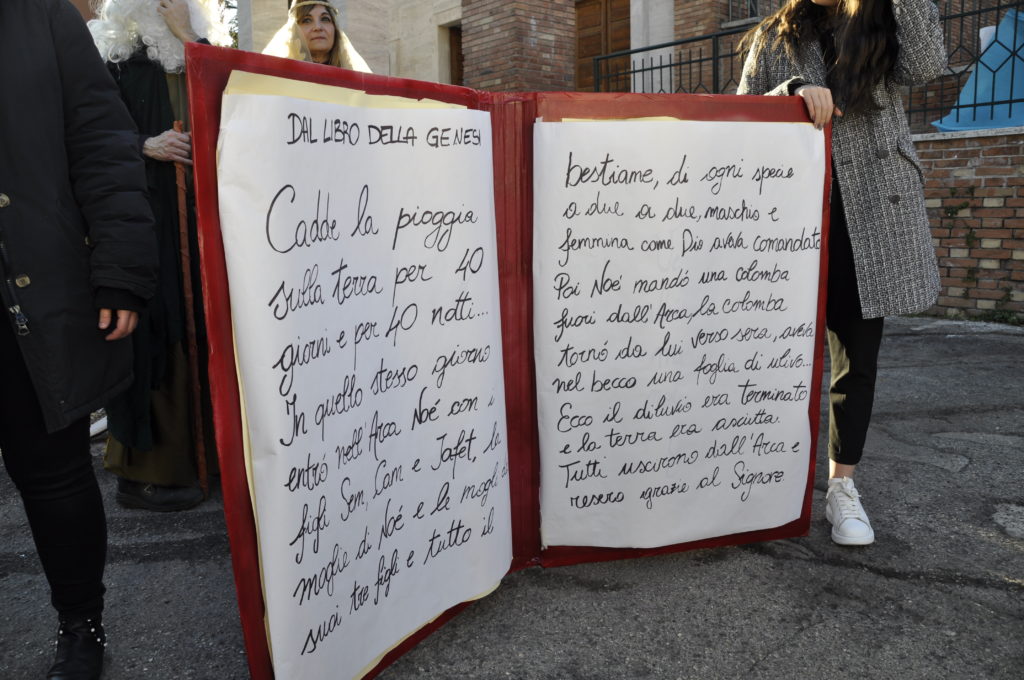 DAL LIBRO DELLA GENESI
Cadde la pioggia
sulla terra per 40
giorni e per 40 notti...
In quello stesso giorno
entró nell'Arca Noé con i
figli Sem, Cam e Jafet, la
moglie di Noé e le mogli
suoi tre figli e tutto il
bestiame, di ogni specie
a due a due, maschio e
femmina come Dio aveva comandato
Poi Noé mandó una colomba
fuori dall'Arca, la colomba
tornó da lui verso sera, aveva
nel becco una foglia di ulivo...
Ecco il diluvio era terminato
e la terra era asciutta.
Tutti uscirono dall'Arca e
resero grazie al Signore.